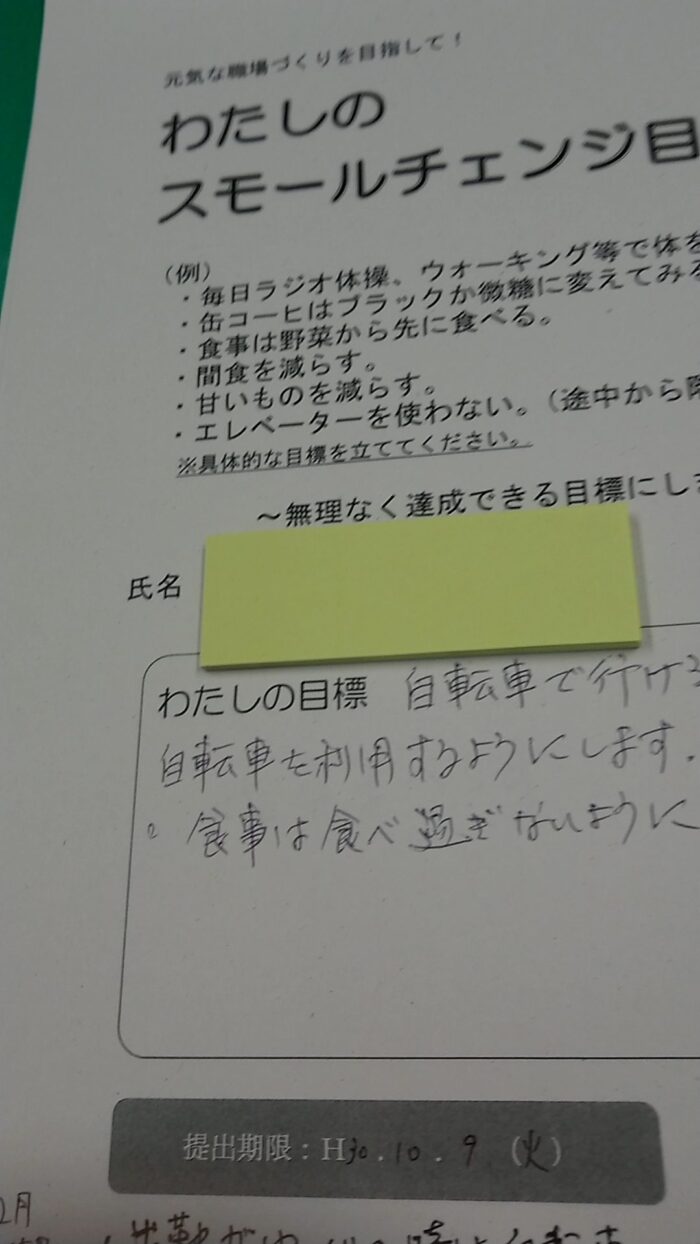 元気な職場づくりを目指して！
わたしの
スモールチェンジ目
（例）
・毎日ラジオ体操、ウォーキング等で体を
・缶コーヒはブラックか微糖に変えてみる
・食事は野菜から先に食べる。
・間食を減らす。
・甘いものを減らす。
・エレベーターを使わない。（途中から降
※具体的な目標を立ててください。
～無理なく達成できる目標にしま
氏名
わたしの目標 自転車で行ける
自転車を利用するようにします.
。食事は食べ過ぎないように
提出期限：H30.10.9（火）
2月